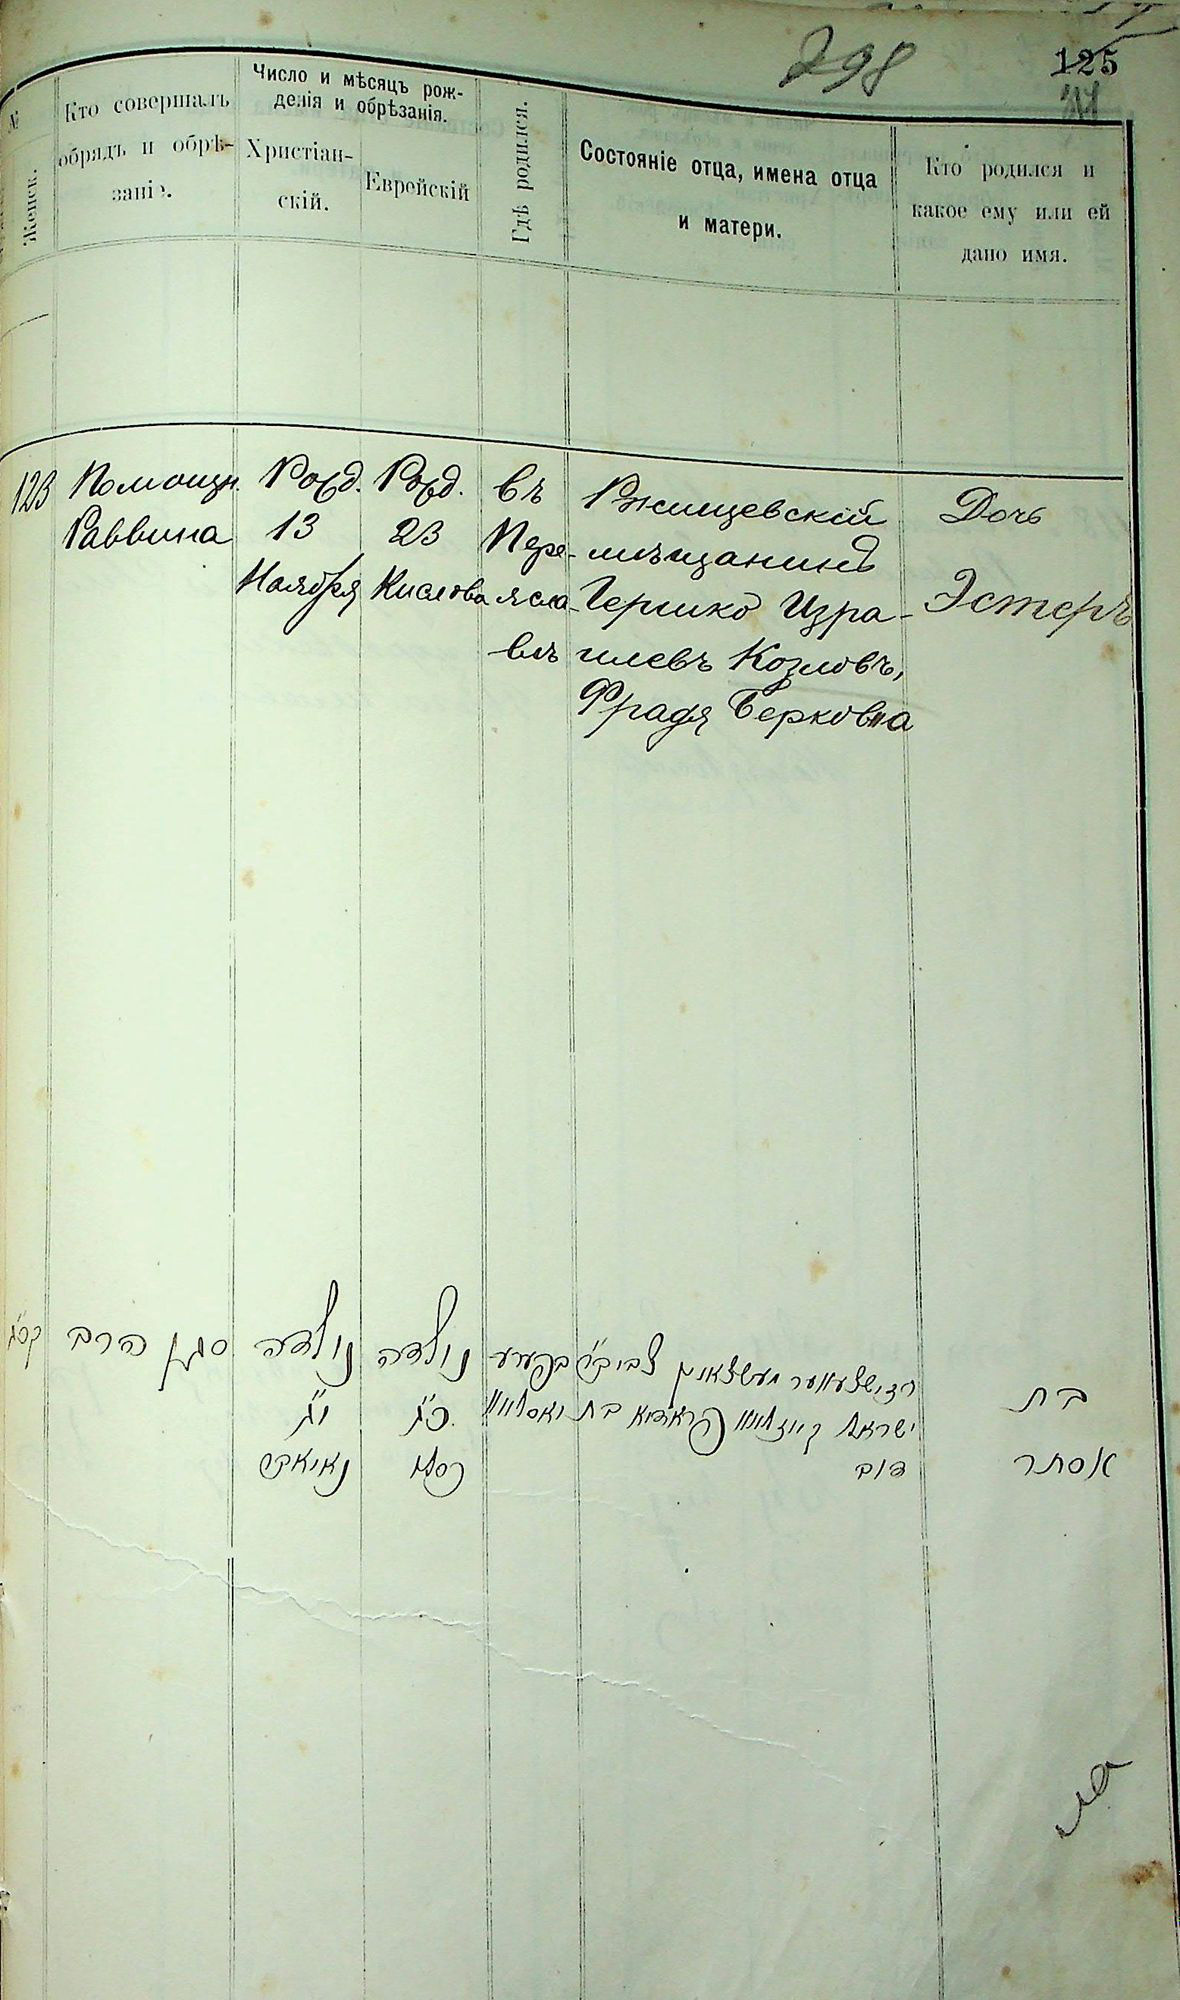 298
125
№
Женск.
Кто совершалъ
обрядъ и обрѣ-
заніе.
Число и мѣсяцъ рож-
денія и обрѣзанія.
Христіан-
скій.
Еврейскій
Гдѣ родился.
Состояніе отца, имена отца
и матери.
Кто родился и
какое ему или ей
дано имя.
123
Помощн.
Раввина
Рожд.
13
Ноября
Рожд.
23
Кислова
въ
Пере-
ясла-
влѣ
Ржищевскій
мѣщанинъ
Гершко Изра-
илевъ Козловъ,
Фрадя Берковна
Дочь
Эстеръ
קכ״ג
סגן הרב
נולדה
י״ג
נאיאבר
נולדה
כ״ג
כסלו
ישראל קיזלוו פראדיא בת
דוב
בת
אסתר